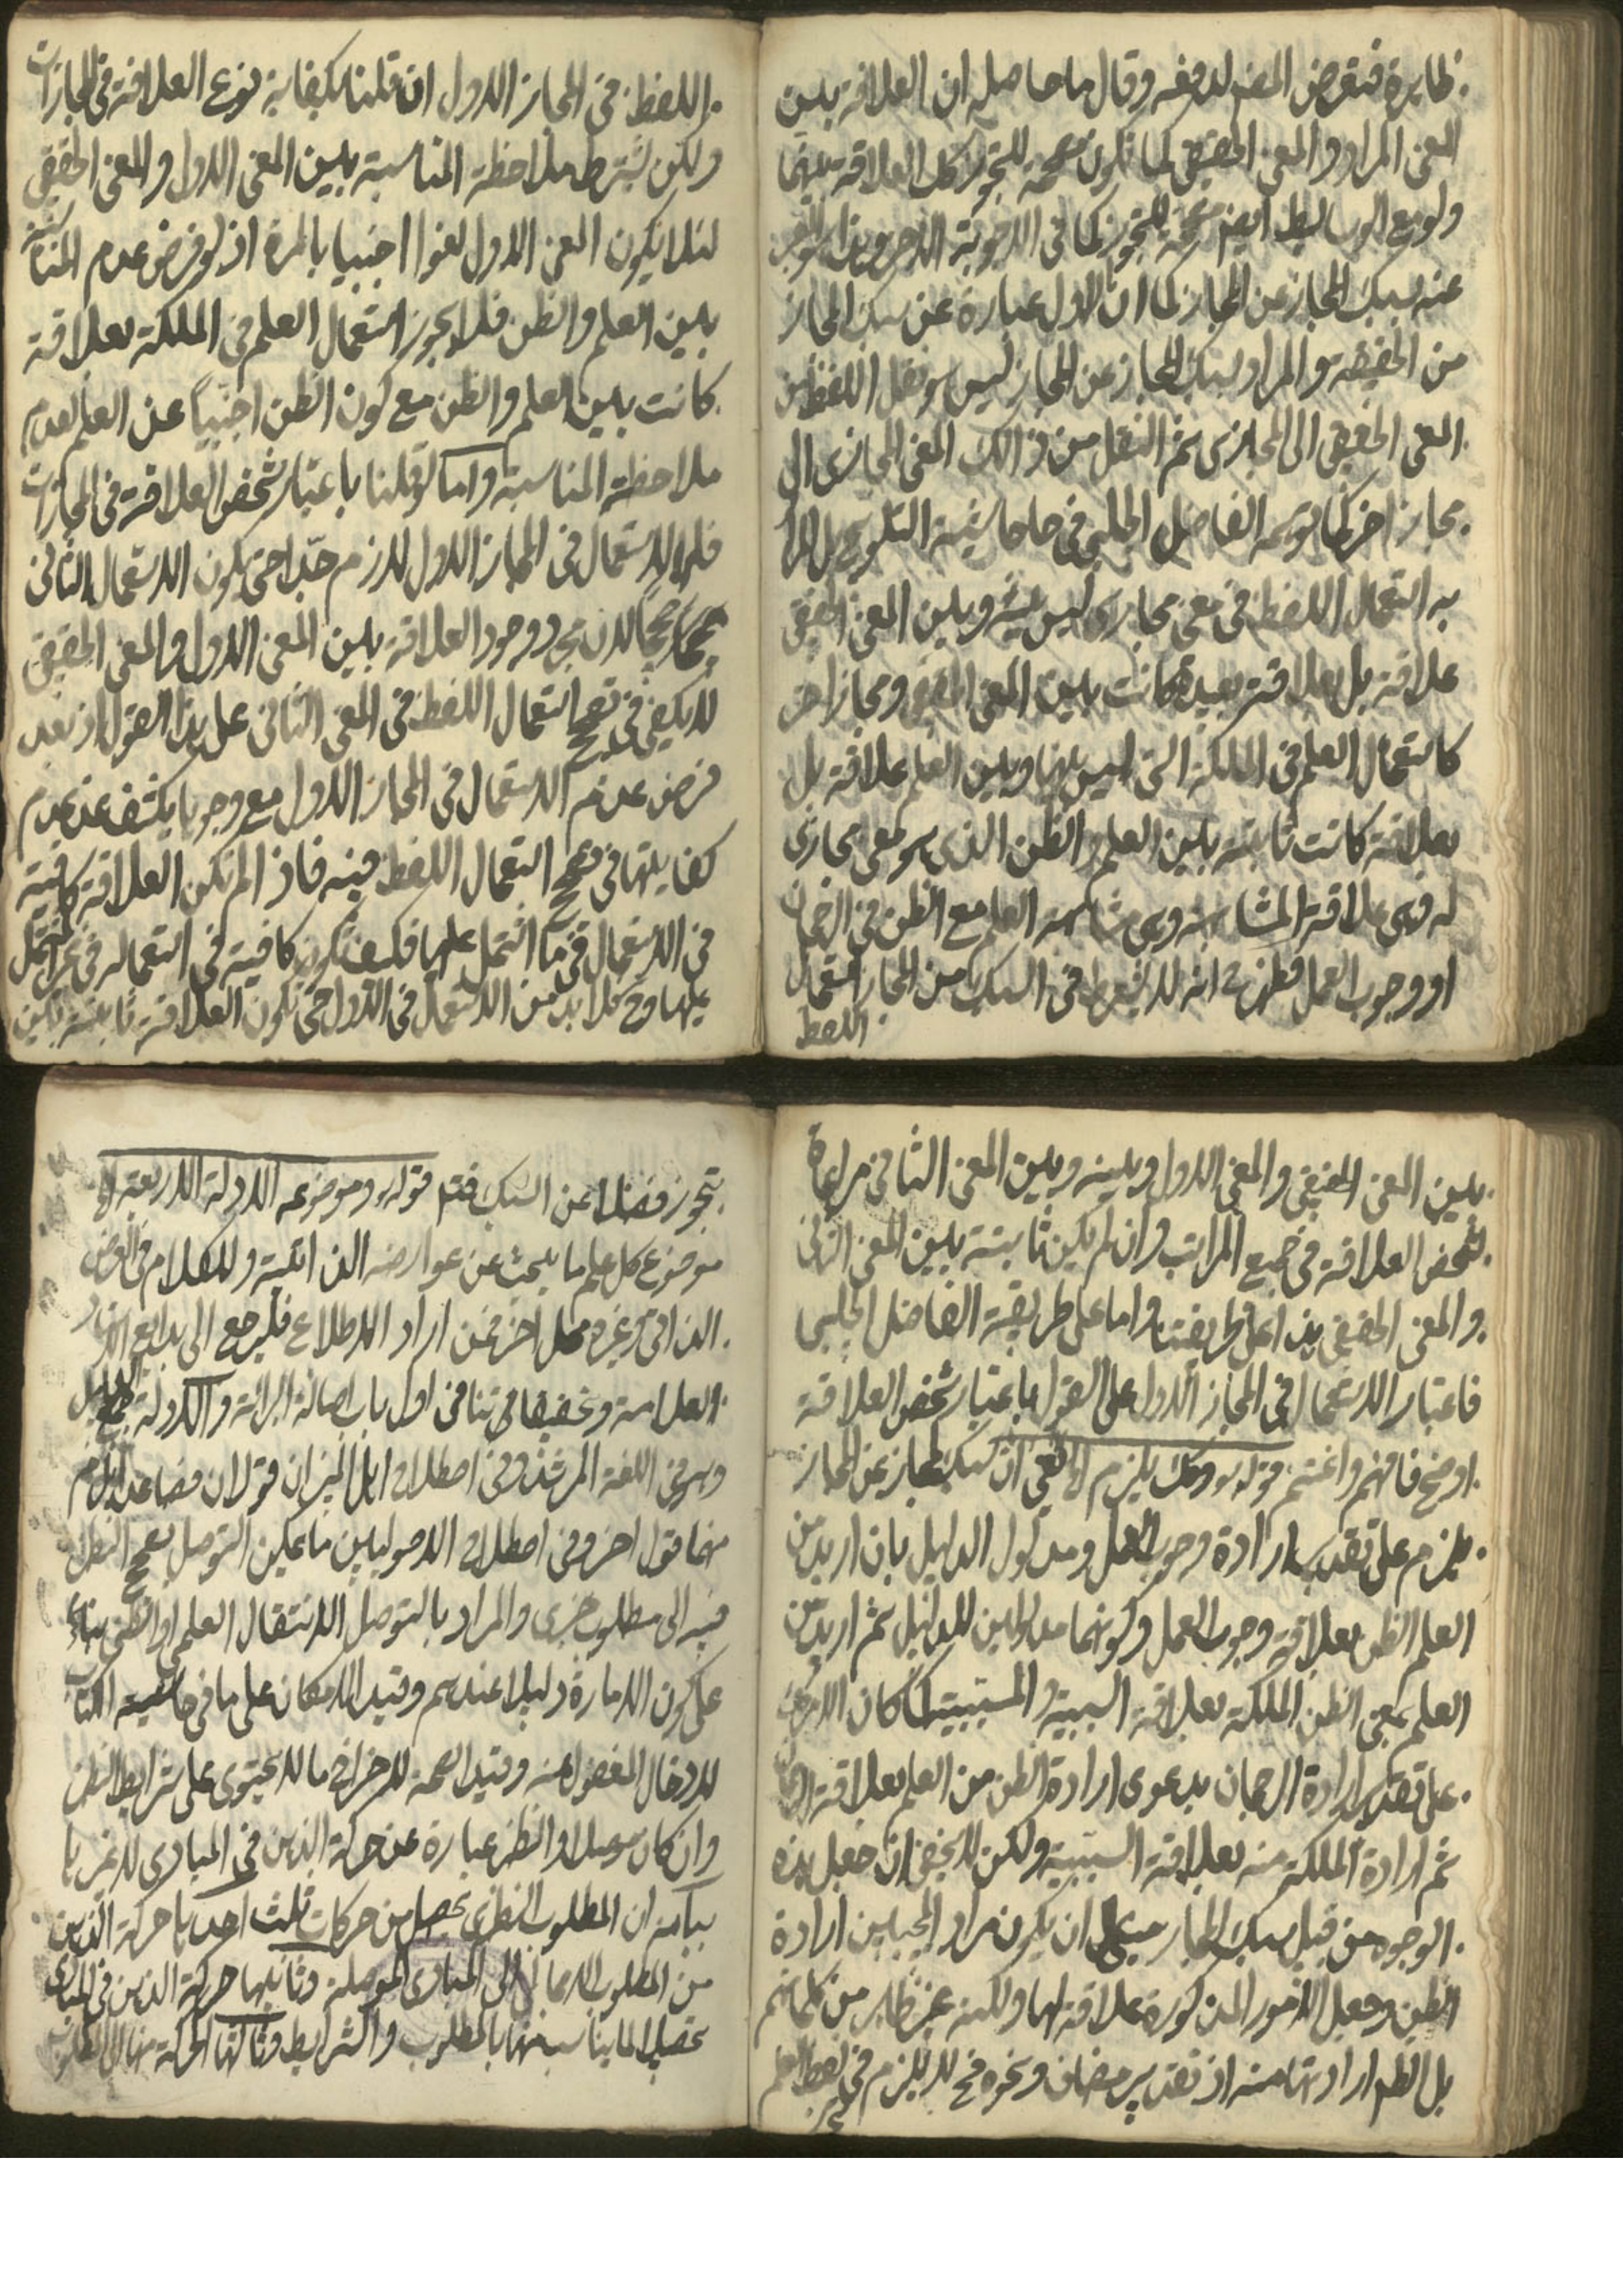 ظايرة فتعرض المصـ لدفعه وقال ما حاصله ان العلاقة بين
المعنى المراد والمعنى الحقيقى كما تكون مصححة للتجوز كك العلاقة بينهما
ولو مع الوسايط ايضا مصححة للتجوز كما فى الاجوبة الاخر وهذا هو المعبر
عنه بسبك المجاز عن المجاز كما ان الاول عبارة عن سبك المجاز
من الحقيقة والمراد بسبك المجاز عن المجاز ليس هو نقل اللفظ من
المعنى الحقيقى الى المجازى ثم النقل من ذالك المعنى المجازى الى
مجاز اخر كما توهمه الفاضل الجلبى فى حاشية التلويح بل المراد
به استعمال اللفظ فى معنى مجازى ليس بينه وبين المعنى الحقيقى
علاقة بل بعلاقة بعيدة كانت بين المعنى الحقيقى ومجاز اخر
كاستعمال العلم فى الملكة التى ليس بينها وبين العلم علاقة بل
بعلاقة كانت ثابتة بين العلم والظن الذى هو معنى مجازى
له وهى علاقة المشابهة وهى مشابهة العلم مع الظن فى الرجحان
او وجوب العمل فظهر انه لا يشترط فى السبك من المجاز استعمال
اللفظ
اللفظ فى المجاز الاول ان قلنا بكفاية نوع العلاقة فى المجازات
ولكن يشترط ملاحظة المناسبة بين المعنى الاول والمعنى الحقيقى
لئلا يكون المعنى الاول لغوا اجنبيا بالمرة اذ لو فرض عدم المناسبة
بين العلم والظن فلا يجوز استعمال العلم فى الملكة بعلاقة
كانت بين العلم والظن مع كون الظن اجنبياً عن العلم لعدم
ملاحظة المناسبة واما لو قلنا باعتبار شخص العلاقة فى المجازات
فلا الاستعمال فى المجاز الاول لازم جدا حتى يكون الاستعمال الثانى
صحيحا لان مجرد وجود العلاقة بين المعنى الاول والمعنى الحقيقى
لا يكفى فى تصحيح استعمال اللفظ فى المعنى الثانى على هذا القول اذ بعد
فرض عدم الاستعمال فى المجاز الاول مع وجوبها يكشف عن عدم
كفايتها فى تصحيح استعمال اللفظ فيه فاذا لم تكن العلاقة كافية
فى الاستعمال فى ما اشتمل عليها فكيف تكون كافية فى استعماله فى غير المشتمل
عليها وح فلا بد من الاستعمال فى الاول حتى تكون العلاقة ثابتة بين
بين المعنى الحقيقى والمعنى الاول وبينه وبين المعنى الثانى مراعاة
لشخص العلاقة فى جميع المراتب وان لم يكن ثابتة بين المعنى الثانى
والمعنى الحقيقى هذا على طريقتنا واما على طريقة الفاضل الجلبى
فاعتبار الاستعمال فى المجاز الاول على القول باعتبار شخص العلاقة
اوضح فافهم واغتنم قوله وكك يلزم الخ يعنى ان سبك المجاز عن المجاز
يلزم على تقدير ارادة وجوب العمل ومدلول الدليل بان اريد من
العلم الظن بعلاقة وجوب العمل وكونهما مدلولين للدليل ثم اريد من
العلم بمعنى الظن الملكة بعلاقة السببية والمسببية كما كان الامر كك
على تقدير ارادة الرجحان بدعوى ارادة الظن من العلم بعلاقة الرجحان
ثم ارادة الملكة منه بعلاقة السببية ولكن لا يخفى ان جعل هذه
الوجوه من قبيل سبك المجاز مبنى على ان يكون مراد المجيبين ارادة
الظن وجعل الامور المذكورة علاقة لها ولكنه غير ظاهر من كلماتهم
بل الظاهر ارادتها منه اذ تقدير مضاف ونحوه فح لا يلزم فى لفظ العلم
تجوز فضلا عن السبك فتم قوله وموضوعه الادلة الاربعة الخ
موضوع كل علم ما يبحث عن عوارضه الذاتية وللكلام فى العرض
الذاتى وغيره محل اخر فمن اراد الاطلاع فليرجع الى بدايع الافكار
العلامة وتحقيقاتنا فى اول باب اصالة البرائة والادلة جمع الدليل
وهو فى اللغة المرشد وفى اصطلاح اهل الميزان قولان فصاعدا يلزم
منهما قول اخر وفى اصطلاح الاصوليين ما يمكن التوصل بصحيح النظر
فيه الى مطلوب خبرى والمراد بالتوصل الانتقال العلمى او الظنى بناء
على كون الامارة دليلا عندهم وقيد الامكان على ما فى حاشية الكتاب
لادخال المغفول عنه وقيد الصحة لاخراج ما لا يحتوى على شرايط النظر
وان كان موصلا والنظر عبارة عن حركة الذهن فى المبادى لا غير با
بيانه ان المطلوب النظرى يحصل من حركات ثلث احديها حركة الذهن
من المطلوب الاجمالى الى المبادى الموصلة وثانيها حركة الذهن فى المبادى
بتحصيل ما يناسب منها بالمطلوب والشرايط وثالثها الحركة منها الى المطلوب